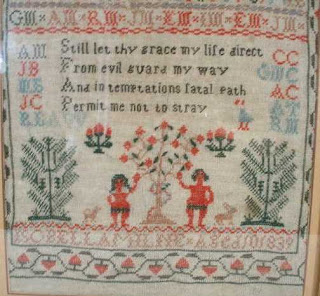 GM * AM * RM * JM * EM * IM * EM * JM
AM Still let thy grace my life direct CC
JB From evil guard my way GWC
And in temptations fatal path AC
JC Permit me not to stray AT
ISOBELLA MILNE * Aged 10 1839